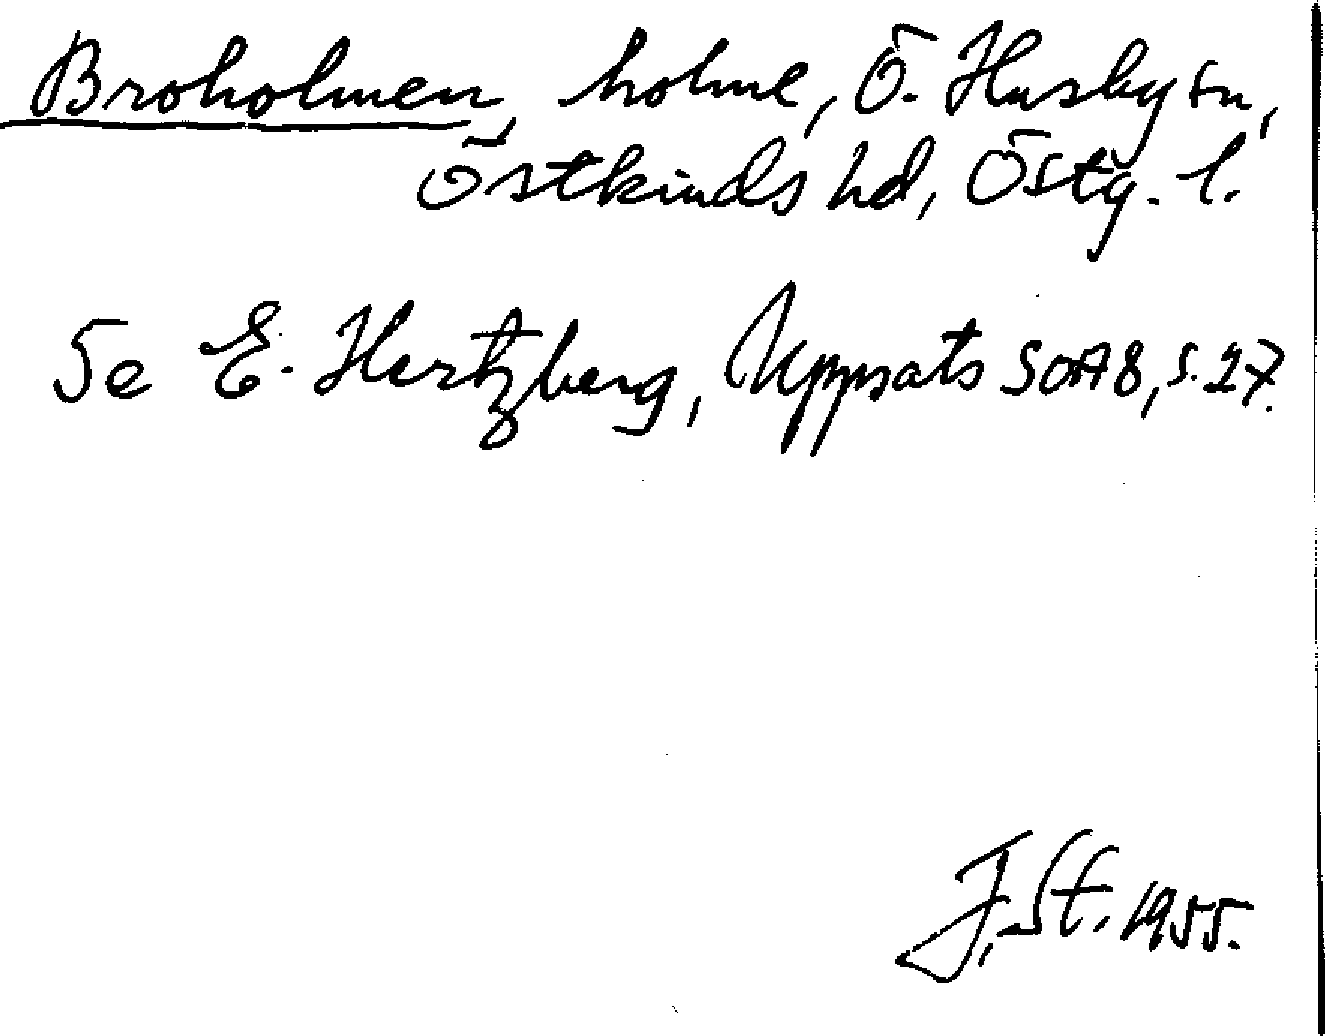 Broholmen, holme, Ö. Husby sn,
Östkinds hd, Östg. l.
Se E. Hertzberg, Uppsats SOA 8, s. 27.
J. St. 1955.